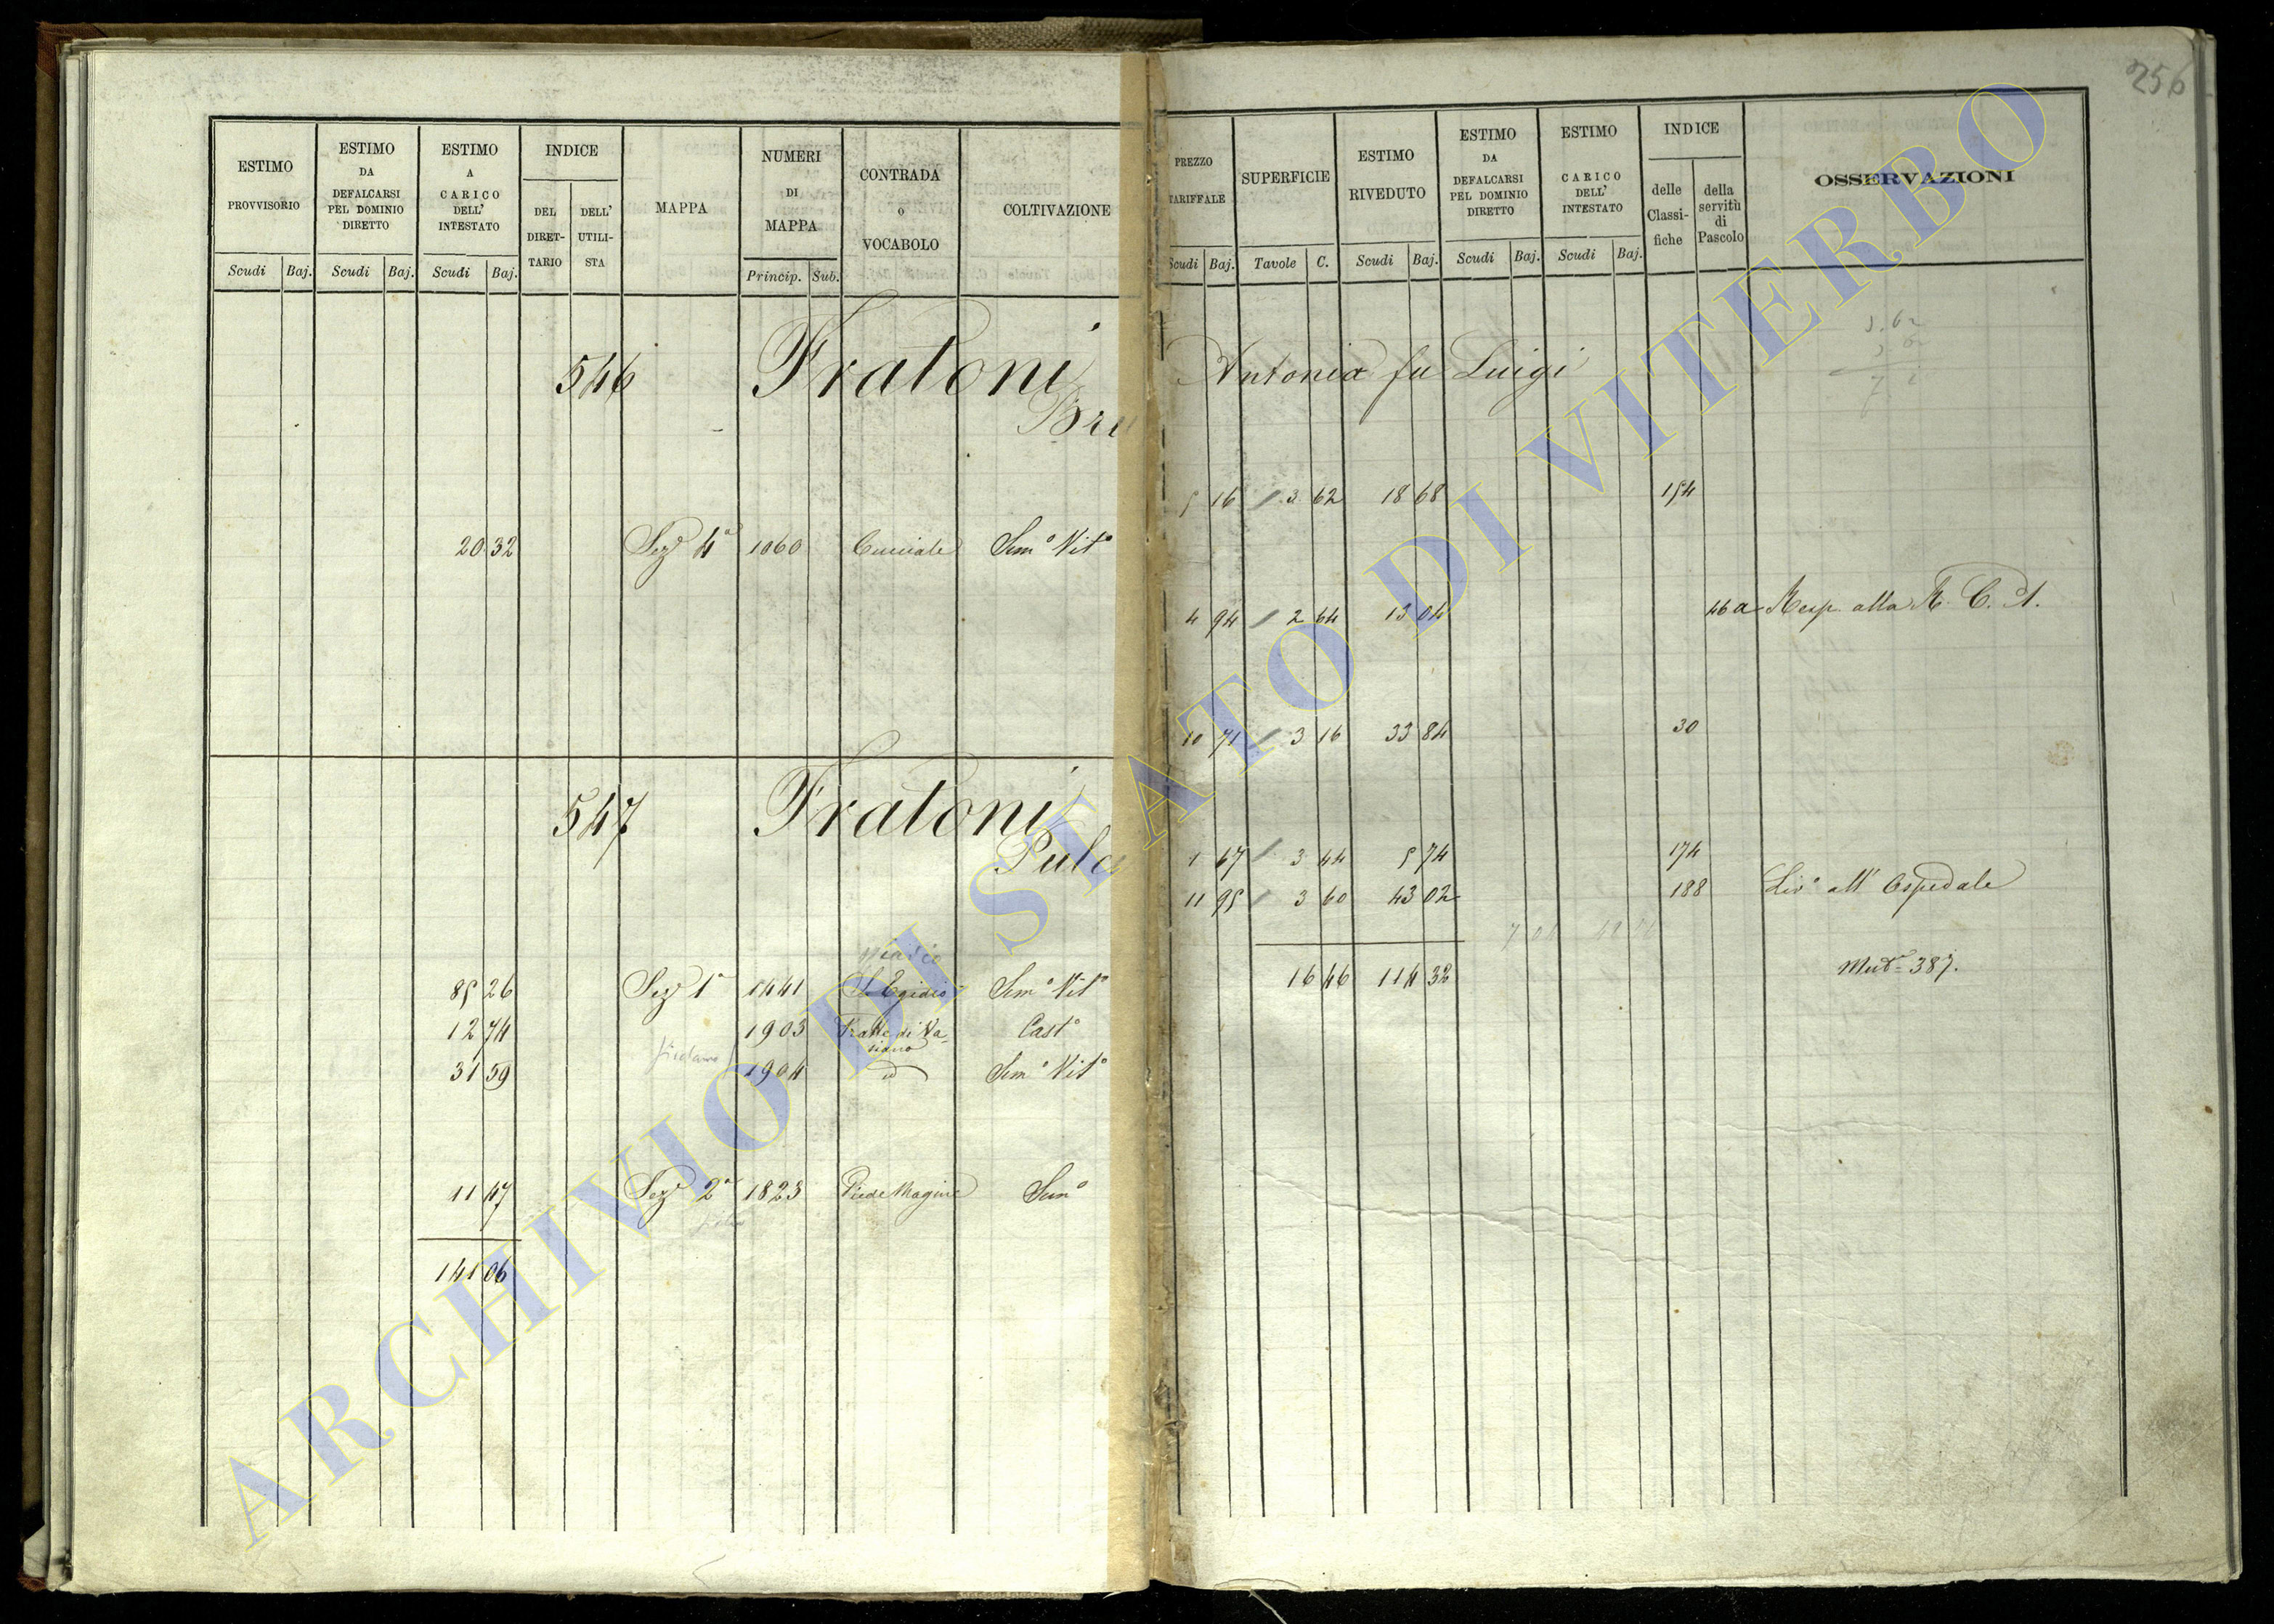 256
ESTIMO PROVVISORIO
ESTIMO DA DEFALCARSI PEL DOMINIO DIRETTO
ESTIMO A CARICO DELL' INTESTATO
INDICE
DEL DIRET- TARIO
DELL' UTILI- STA
MAPPA
NUMERI DI MAPPA
CONTRADA O VOCABOLO
COLTIVAZIONE
Scudi Baj. Scudi Baj. Scudi Baj. Princip. Sub.
546 Fratoni
Bru
20 32 Sezᵉ 4ª 1060 Cucciale Semº Vitº
547 Fratoni
Pula
85 26 Sezᵉ 1ª 1441 S. Egidio Semº Vitº
12 74 1903 Fratte di Va- Castº
siano
31 59 1904 id Semº Vitº
11 47 Sezᵉ 2ª 1823 Piede Magine Semº
141 06
PREZZO TARIFFALE
SUPERFICIE
ESTIMO RIVEDUTO
ESTIMO DA DEFALCARSI PEL DOMINIO DIRETTO
ESTIMO A CARICO DELL' INTESTATO
INDICE
delle Classi- fiche
della servitù di Pascolo
OSSERVAZIONI
Scudi Baj. Tavole C. Scudi Baj. Scudi Baj. Scudi Baj.
Antonia fu Luigi
5 16 3 62 18 68 154
4 94 2 64 13 04 46 a Resp. alla R. C. A.
10 71 3 16 33 84 30
1 67 3 44 5 74 174
11 95 3 60 43 02 188 Livº all' Ospedale
16 46 114 32 Mutª 387.
ARCHIVIO DI STATO DI VITERBO